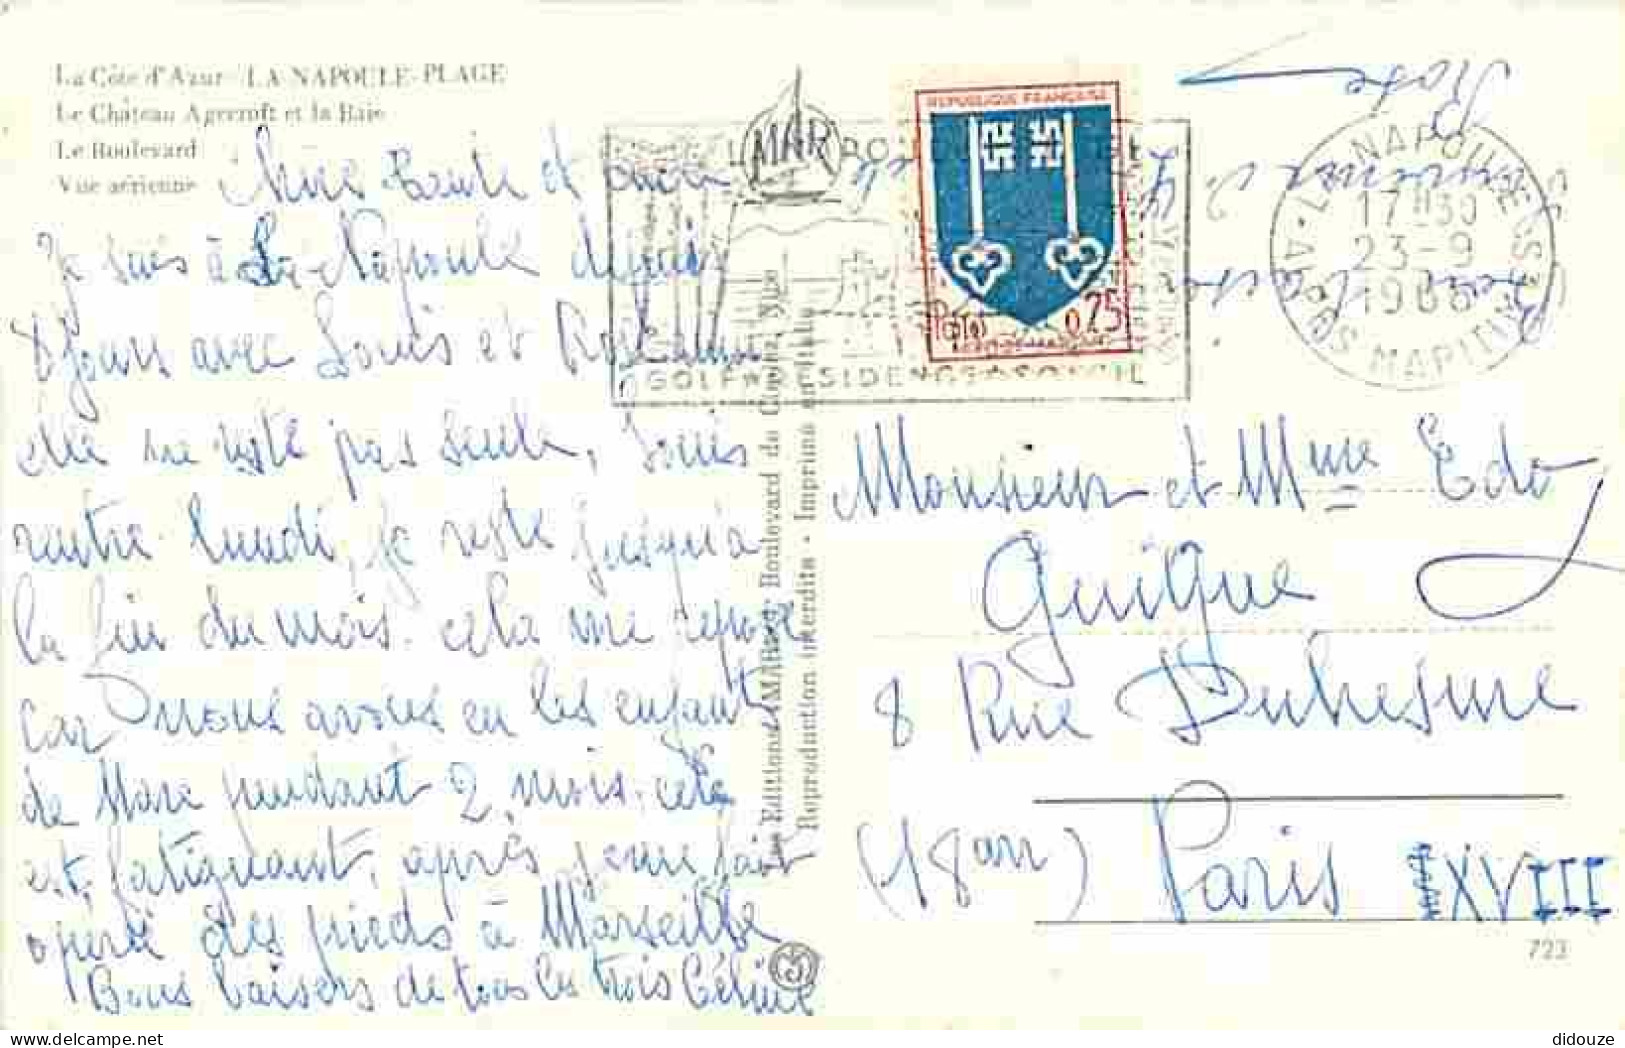 La Côte d'Azur LA NAPOULE-PLAGE
Le Château Agecroft et la Baie
Le Boulevard
Vue aérienne
Chère Tante et
Je suis à La Napoule depuis
8 jours avec Louis et
elle ne reste pas seule, Louis
rentre lundi, je reste jusqu'à
la fin du mois. cela me repose
car nous avons eu les enfants
de Marc pendant 2 mois. cela
est fatiguant, après je me fait
opéré des pieds à Marseille
Bons baisers de tous les trois Céline
Les Editions MAR Boulevard de Cimiez, Nice
Reproduction interdite - Imprimé en Italie
MAR
REPUBLIQUE FRANÇAISE
Postes 0,25
MONT-DE-MARSAN
GOLF RESIDENCES
LA NAPOULE
17H30
23-9
1966
ALPES MARITIMES
Monsieur et Mme Edo
Guigue
8 Rue Duhesme
(18 arr) Paris XVIII
723
didouze